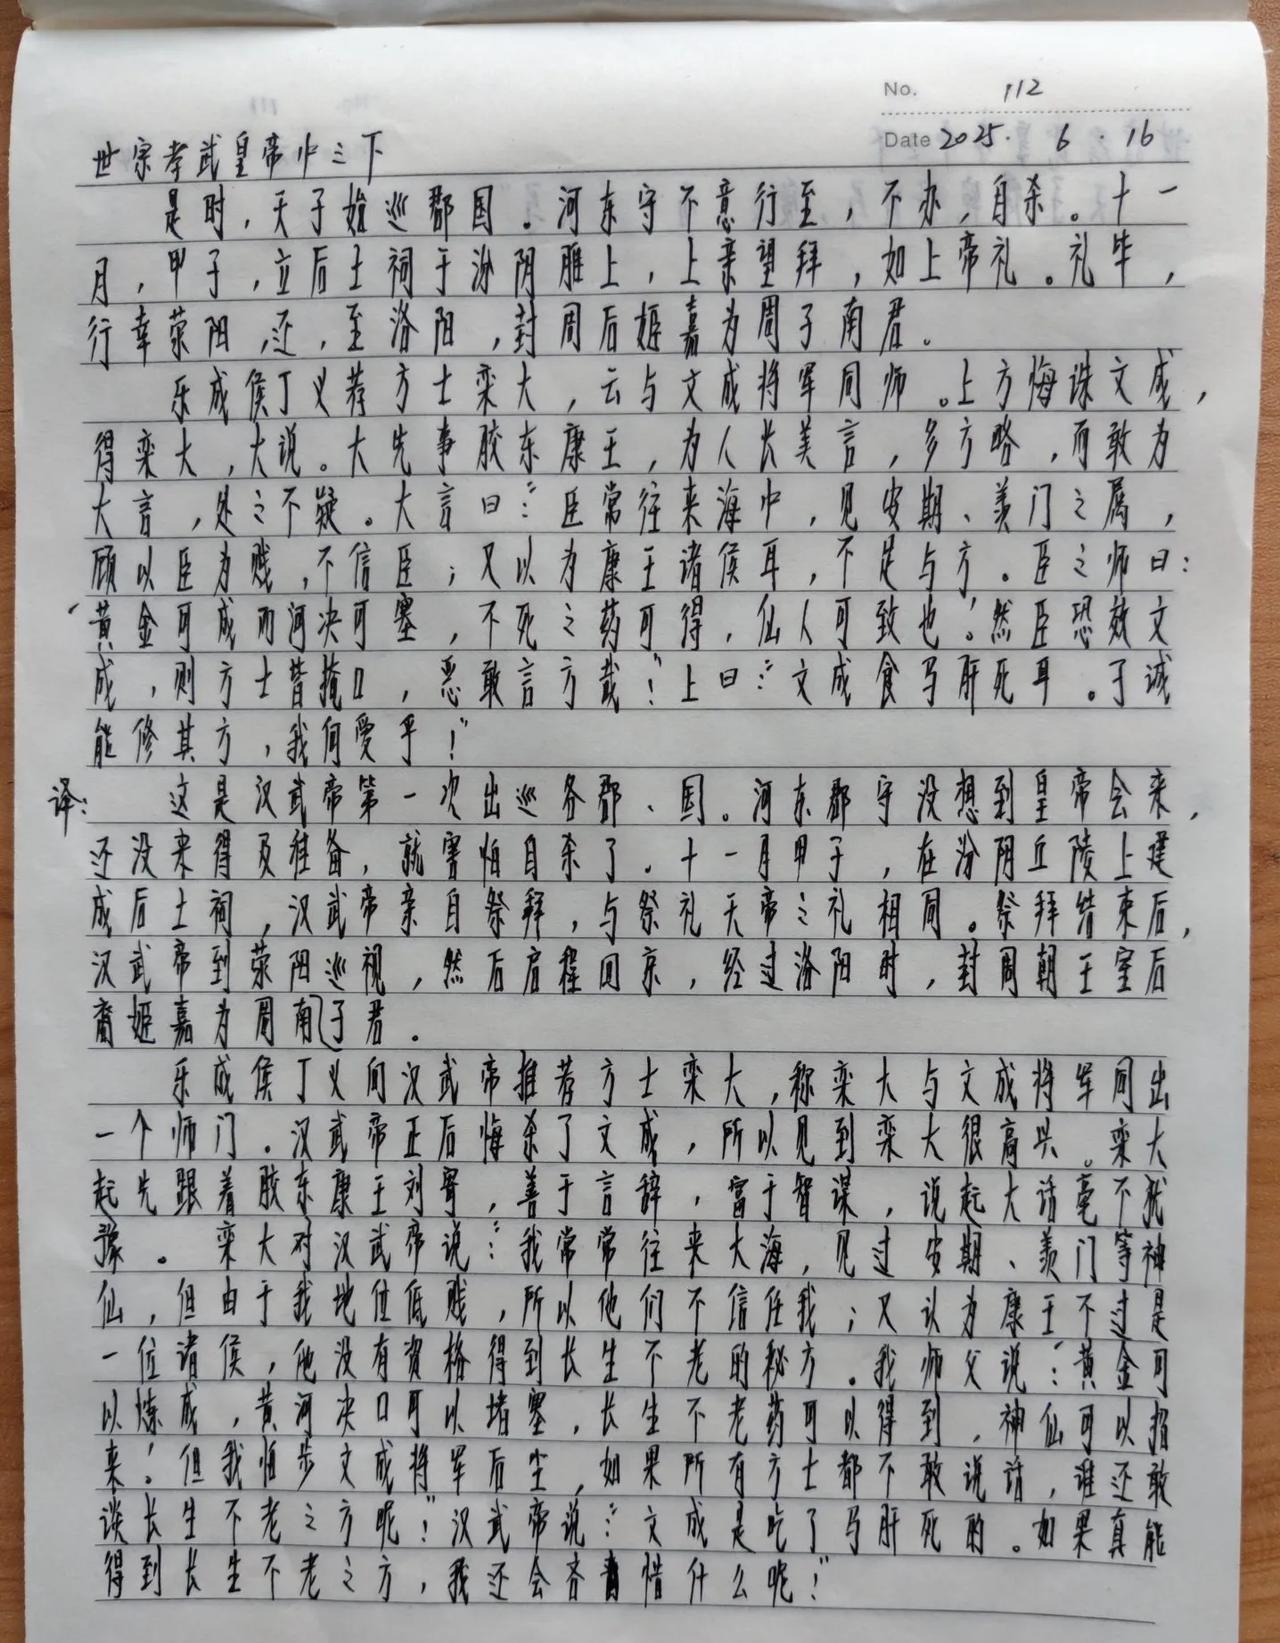 No. 112
Date 2025. 6. 16
世宗孝武皇帝中之下
是时，天子始巡郡国。河东守不意行至，不办，自杀。十一
月，甲子，立后土祠于汾阴脽上，上亲望拜，如上帝礼。礼毕，
行幸荥阳，还，至洛阳，封周后姬嘉为周子南君。
乐成侯丁义荐方士栾大，云与文成将军同师。上方悔诛文成，
得栾大，大说。大先事胶东康王，为人长美言，多方略，而敢为
大言，处之不疑。大言曰：“臣常往来海中，见安期、羡门之属，
顾以臣为贱，不信臣；又以为康王诸侯耳，不足与方。臣之师曰：
‘黄金可成而河决可塞，不死之药可得，仙人可致也！’然臣恐效文
成，则方士皆掩口，恶敢言方哉！”上曰：“文成食马肝死耳。子诚
能修其方，我何爱乎！”
译：这是汉武帝第一次出巡各郡、国。河东郡守没想到皇帝会来，
还没来得及准备，就害怕自杀了。十一月甲子，在汾阴丘陵上建
成后土祠，汉武帝亲自祭拜，与祭礼天帝之礼相同。祭拜结束后，
汉武帝到荥阳巡视，然后启程回京，经过洛阳时，封周朝王室后
裔姬嘉为周南子君。
乐成侯丁义向汉武帝推荐方士栾大，称栾大与文成将军同出
一个师门。汉武帝正后悔杀了文成，所以见到栾大很高兴。栾大
起先跟着胶东康王刘寄，善于言辞，富于智谋，说起大话毫不犹
豫。栾大对汉武帝说：“我常常往来大海，见过安期、羡门等神
仙，但由于我地位低贱，所以他们不信任我；又认为康王不过是
一位诸侯，他没有资格得到长生不老的秘方。我师父说：‘黄金可
以炼成，黄河决口可以堵塞，长生不老药可以得到，神仙可以招
来！’但我怕步文成将军后尘，如果所有方士都不敢说话，谁还敢
谈长生不老之方呢！”汉武帝说：“文成是吃了马肝死的。如果真能
得到长生不老之方，我还会吝惜什么呢！”